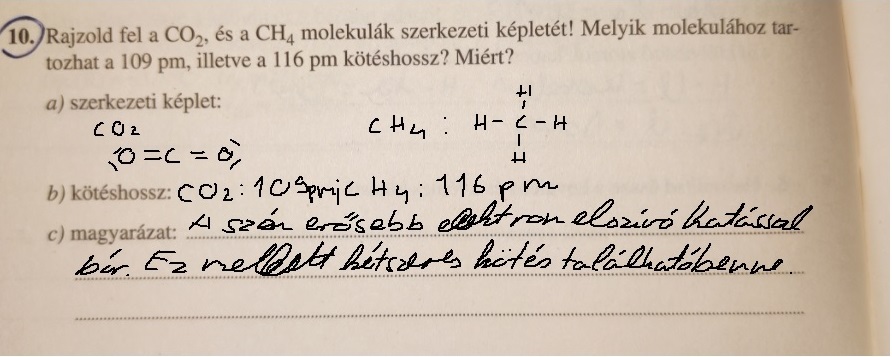 10. Rajzold fel a CO₂, és a CH₄ molekulák szerkezeti képletét! Melyik molekulához tar-
tozhat a 109 pm, illetve a 116 pm kötéshossz? Miért?
a) szerkezeti képlet:
H
CO2 CH4 : H-C-H
O=C=O H
b) kötéshossz: CO2: 109pm; CH4: 116 pm
c) magyarázat: A szén erősebb elektron elszívó hatással
bír. Ez mellett kétszeres kötés található benne.